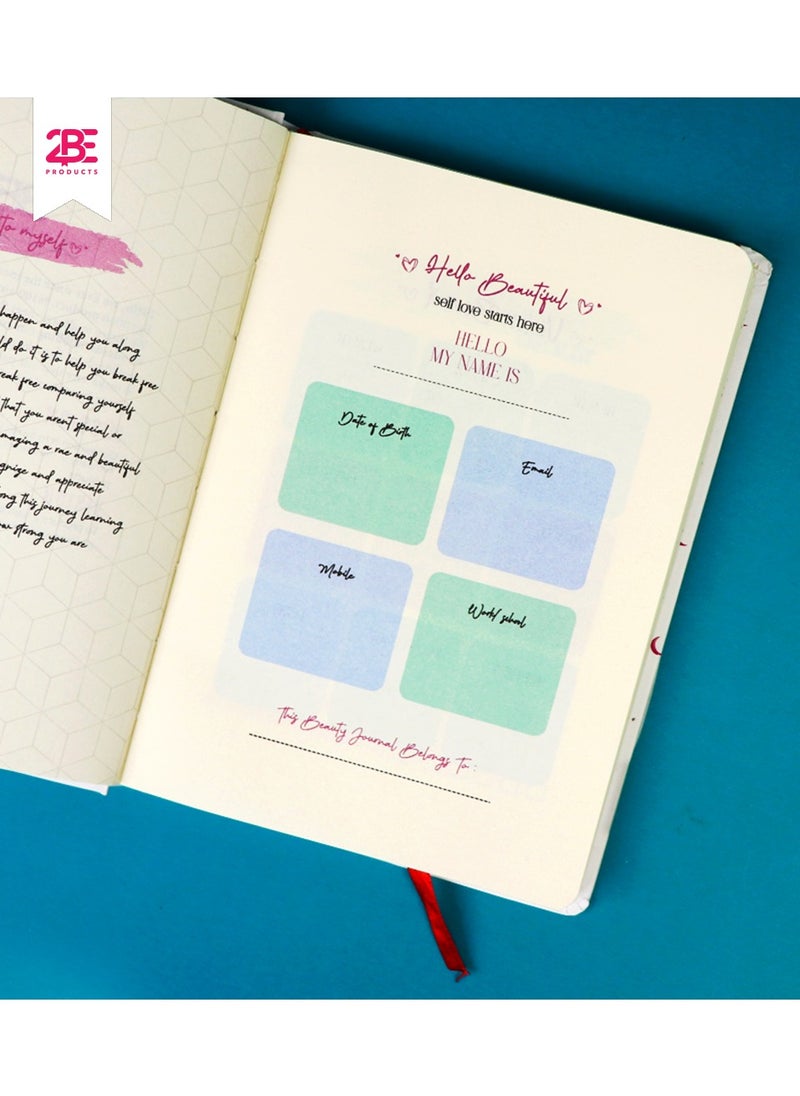 2BE
PRODUCTS
to myself
happen and help you along
ld do it is to help you break free
reak free comparing yourself
that you arent special or
mazing a rae and beautiful
gnize and appreciate
ong this journey learning
ow strong you are
Hello Beautiful
self love starts here
HELLO
MY NAME IS
Date of Birth
Email
Mobile
Work/ school
This Beauty Journal Belongs To :